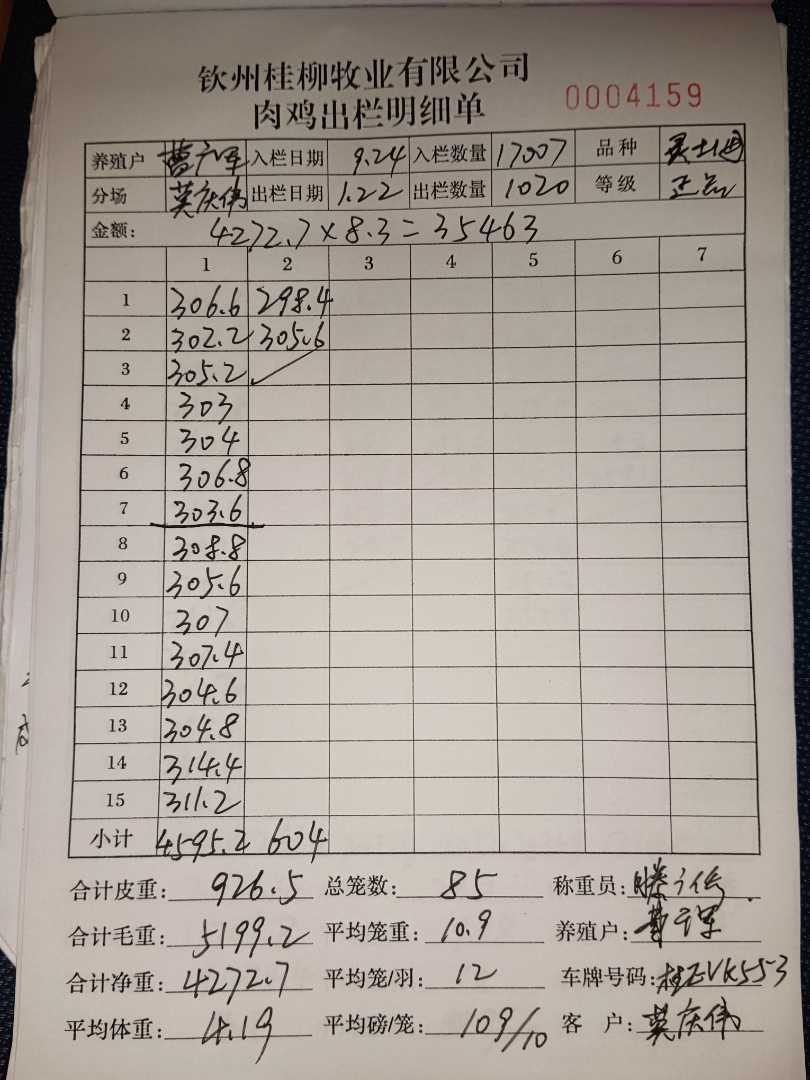 钦州桂柳牧业有限公司
肉鸡出栏明细单 0004159
养殖户 曹广军 入栏日期 9.24 入栏数量 17007 品种 灵士1号
分场 莫庆伟 出栏日期 1.22 出栏数量 1020 等级 正品
金额: 4272.7×8.3=35463
1 2 3 4 5 6 7
1 306.6 298.4
2 302.2 305.6
3 305.2 ✓
4 303
5 304
6 306.8
7 303.6
8 308.8
9 305.6
10 307
11 307.4
12 304.6
13 304.8
14 314.4
15 311.2
小计 4595.2 604
合计皮重: 926.5 总笼数: 85 称重员:
合计毛重: 5199.2 平均笼重: 10.9 养殖户: 曹广军
合计净重: 4272.7 平均笼/羽: 12 车牌号码: 桂EVK553
平均体重: 4.19 平均磅/笼: 109/10 客户: 莫庆伟